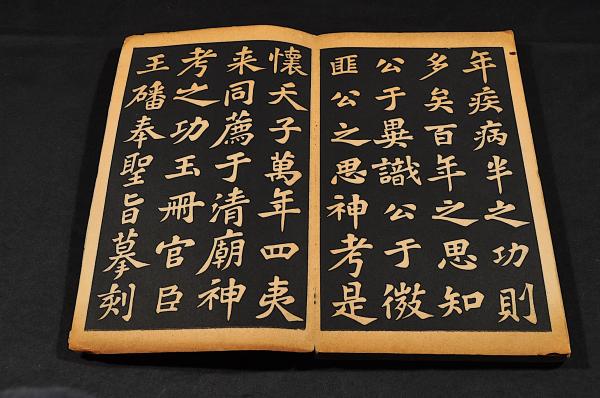 年疾病半之功則
多矣百年之思知
公于異識公于微
匪公之思神考是
懷天子萬年四夷
来同薦于清廟神
考之功玉冊官臣
王磻奉聖旨摹刻